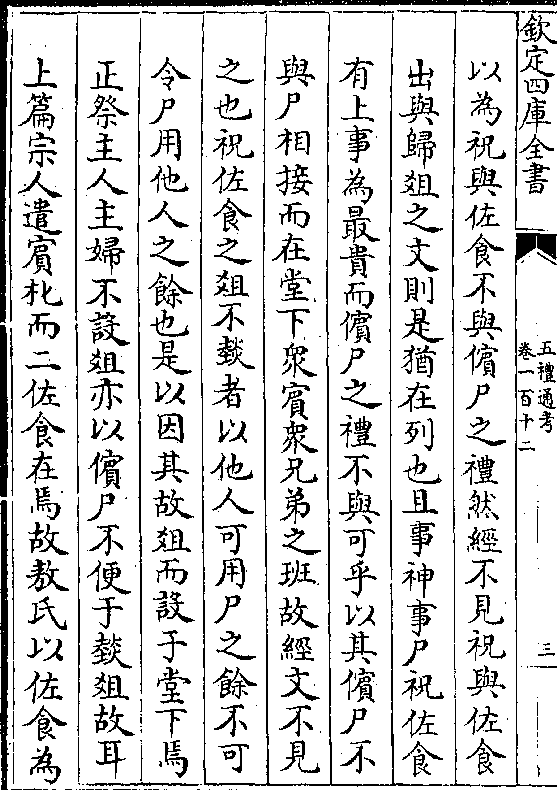 欽定四庫全書
五禮通考
卷一百十二
三
以為祝與佐食不與儐尸之禮然經不見祝與佐食
出與歸俎之文則是猶在列也且事神事尸祝佐食
有上事為最貴而儐尸之禮不與可乎以其儐尸不
與尸相接而在堂下衆賓衆兄弟之班故經文不見
之也祝佐食之俎不燅者以他人可用尸之餘不可
令尸用他人之餘也是以因其故俎而設于堂下焉
正祭主人主婦不設俎亦以儐尸不便于燅俎故耳
上篇宗人遣賓朼而二佐食在焉故敖氏以佐食為